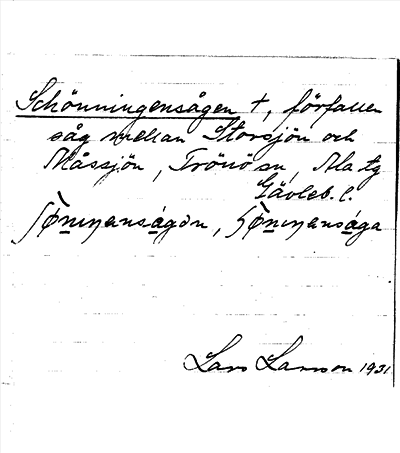 Schönningensågen †, förfallen
såg mellan Storsjön och
Måssjön, Trönö sn, Ala tg
Gävleb. l.
Lars Larsson 1931